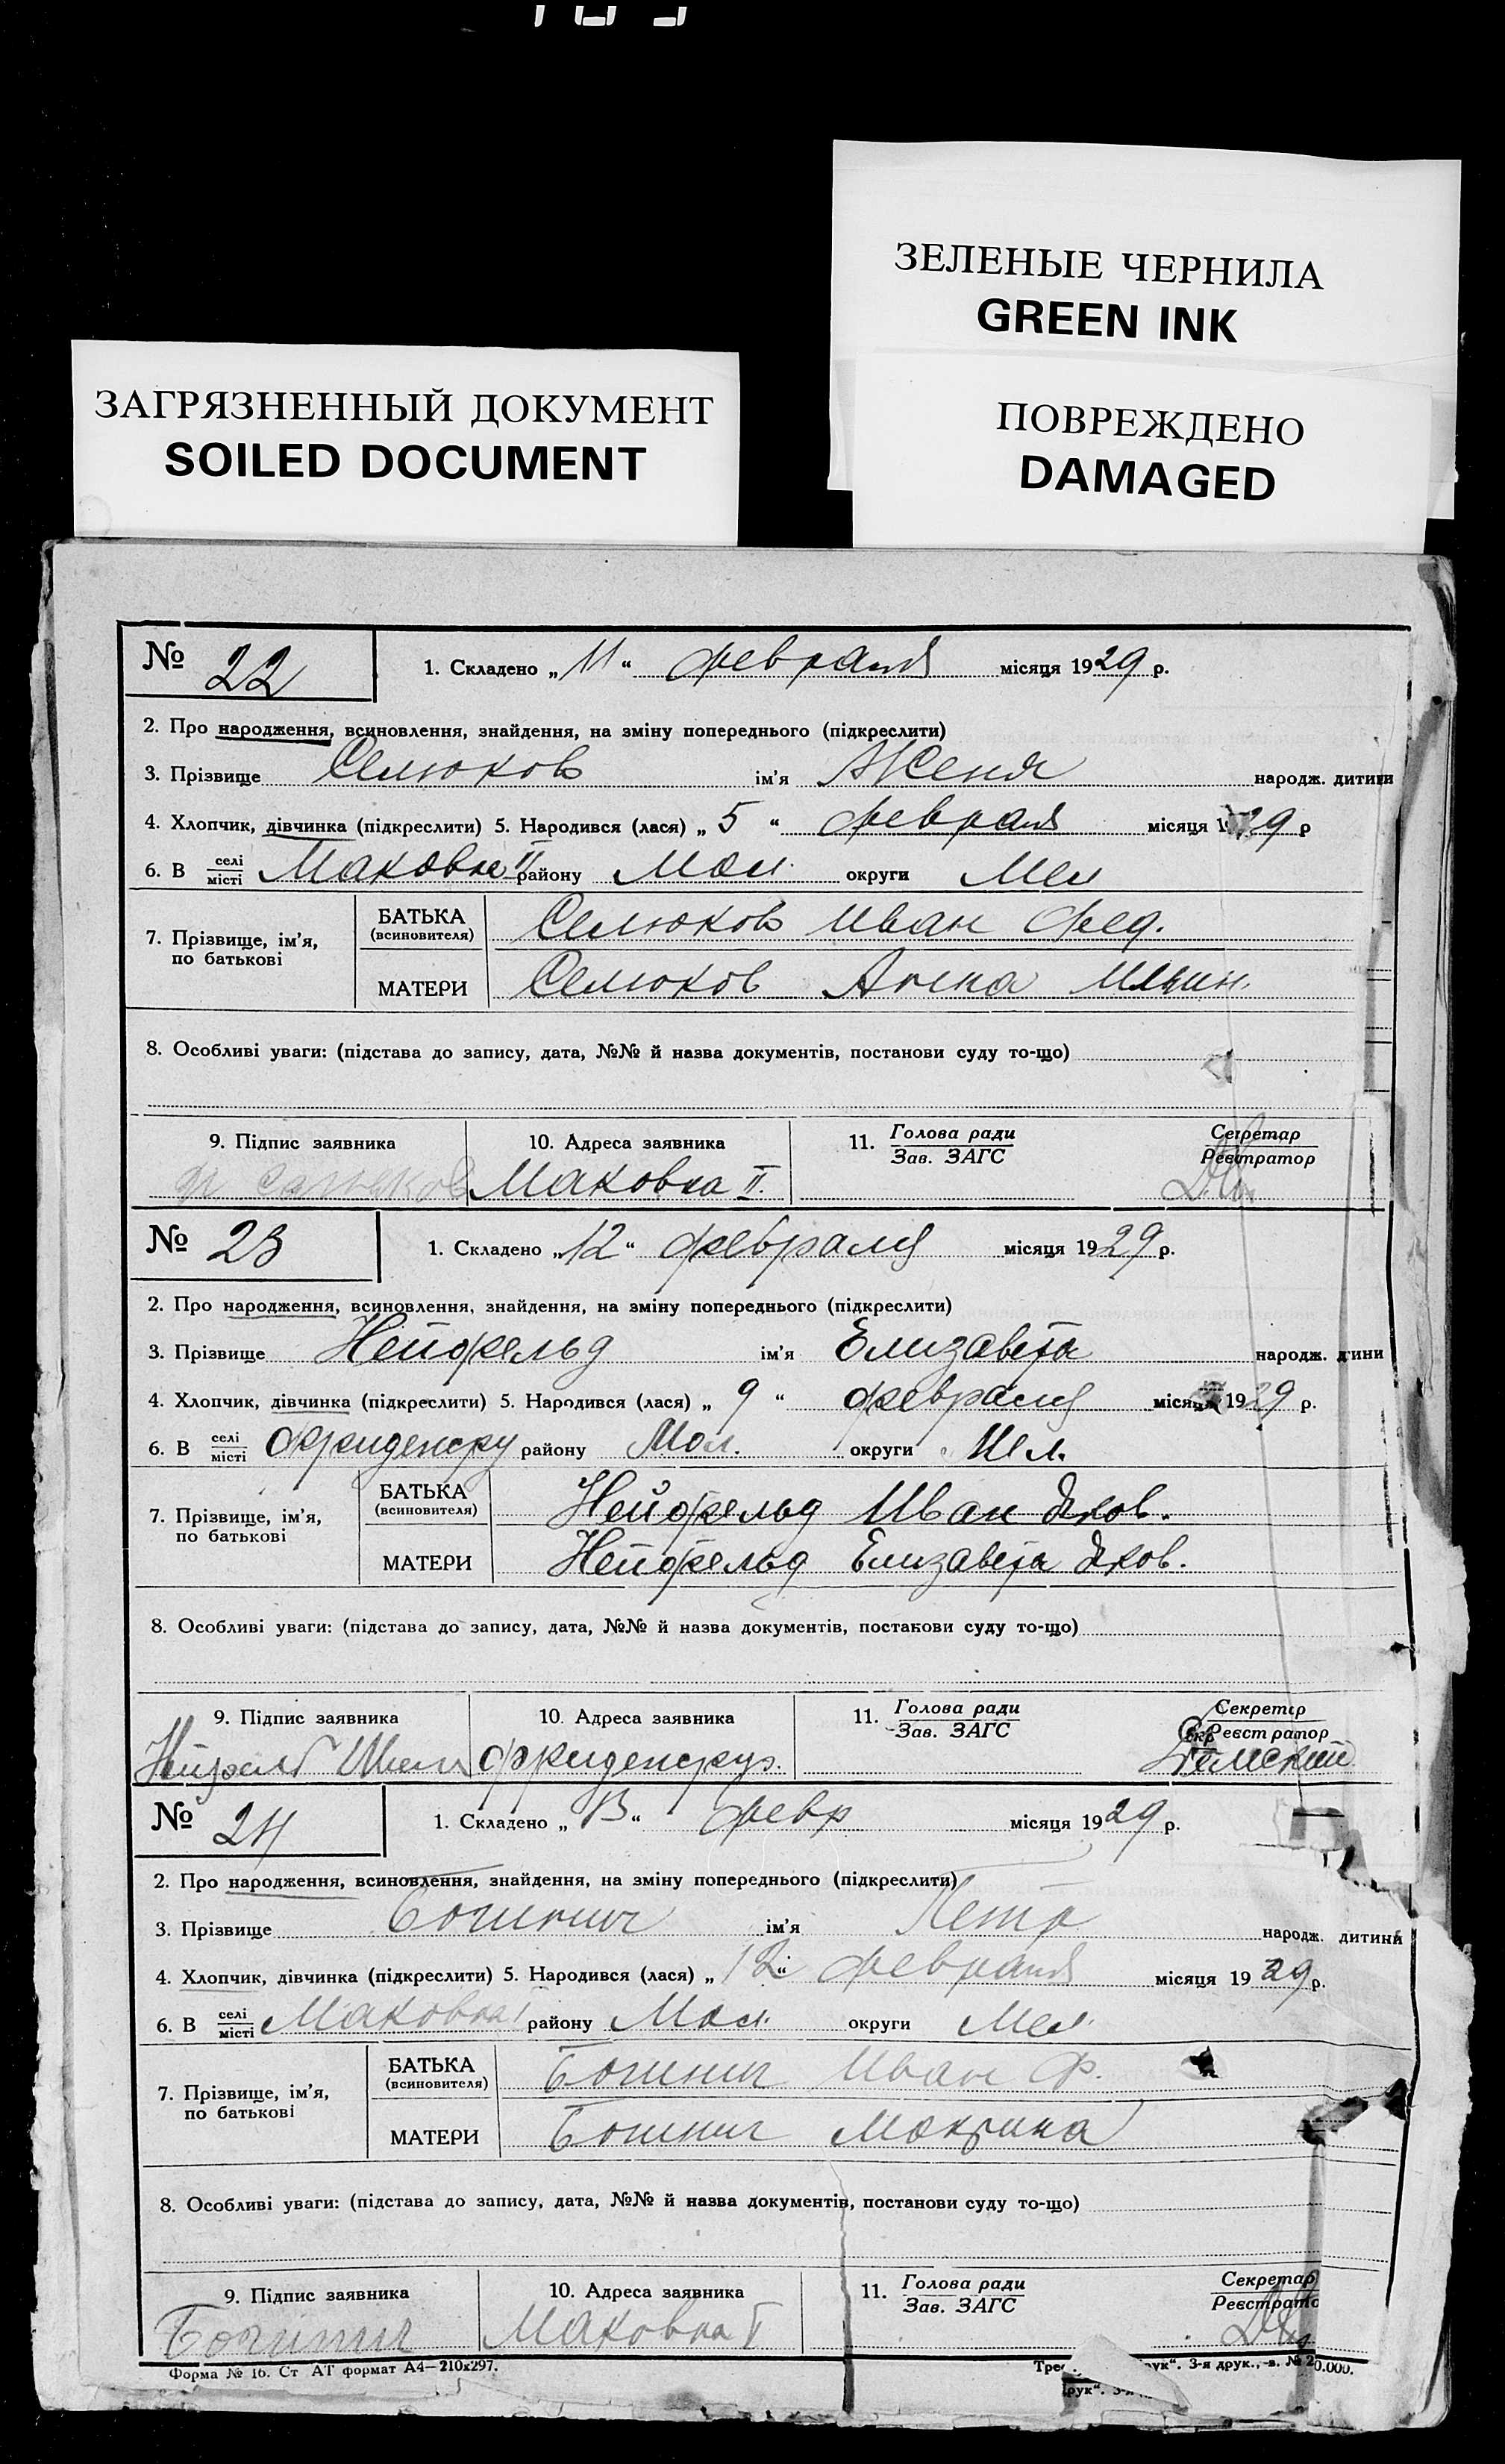 ЗЕЛЕНЫЕ ЧЕРНИЛА
GREEN INK
ЗАГРЯЗНЕННЫЙ ДОКУМЕНТ
SOILED DOCUMENT
ПОВРЕЖДЕНО
DAMAGED
№ 22 1. Складено „ 11 “ февраля місяця 1929 р.
2. Про народження, всиновлення, знайдення, на зміну попереднього (підкреслити)
3. Прізвище Селюков ім'я Женя народж. дитини
4. Хлопчик, дівчинка (підкреслити) 5. Народився (лася) „ 5 “ февраля місяця 1929 р
6. В селі місті Маковка II району Мол. округи Мел
7. Прізвище, ім'я, по батькові
БАТЬКА (всиновителя) Селюков Иван Фед.
МАТЕРИ Селюков Анна Ильин.
8. Особливі уваги: (підстава до запису, дата, №№ й назва документів, постанови суду то-що)
9. Підпис заявника 10. Адреса заявника 11. Голова ради Зав. ЗАГС Секретар Реєстратор
Маковка II.
№ 23 1. Складено „12“ февраля місяця 1929 р.
2. Про народження, всиновлення, знайдення, на зміну попереднього (підкреслити)
3. Прізвище Нейфельд ім'я Елизавета народж. д ини
4. Хлопчик, дівчинка (підкреслити) 5. Народився (лася) „ 9 “ февраля місяця 1929 р.
6. В селі місті району Мол. округи Мел.
7. Прізвище, ім'я, по батькові
БАТЬКА (всиновителя) Нейфельд Иван Яков.
МАТЕРИ Нейфельд Елизавета Яков.
8. Особливі уваги: (підстава до запису, дата, №№ й назва документів, постанови суду то-що)
9. Підпис заявника 10. Адреса заявника 11. Голова ради Зав. ЗАГС Секретар Реєстратор
№ 24 1. Складено „ 13 “ февр місяця 1929 р.
2. Про народження, всиновлення, знайдення, на зміну попереднього (підкреслити)
3. Прізвище ім'я Петр народж. дитини
4. Хлопчик, дівчинка (підкреслити) 5. Народився (лася) „ 12 “ февраля місяця 1929 р.
6. В селі місті Маковка I району Мол. округи Мел.
7. Прізвище, ім'я, по батькові
БАТЬКА (всиновителя) Иван Ф.
МАТЕРИ Мокрина
8. Особливі уваги: (підстава до запису, дата, №№ й назва документів, постанови суду то-що)
9. Підпис заявника 10. Адреса заявника 11. Голова ради Зав. ЗАГС Секретар Реєстрато
Маковка I
Форма № 16. Ст АТ формат А4—210х297. 3-я друк.,